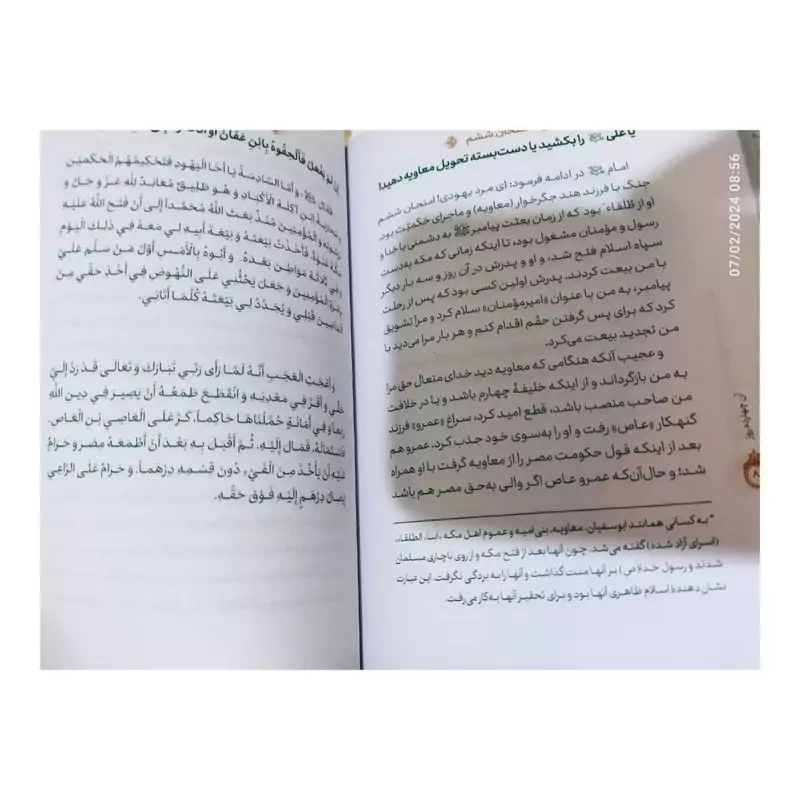 امتحان ششم
یا علی ﷺ را بکشید یا دست‌بسته تحویل معاویه دهید!
امام ﷺ در ادامه فرمود: ای مرد یهودی! امتحان ششم
جنگ با فرزند هند جگرخوار (معاویه) و ماجرای حکمیّت بود.
او از طُلَقاء* بود که از زمان بعثت پیامبر ﷺ به دشمنی با خدا و
رسول و مؤمنان مشغول بود، تا اینکه زمانی که مکه به‌دست
سپاه اسلام فتح شد، و او و پدرش در آن روز و سه بار دیگر
با من بیعت کردند. پدرش اولین کسی بود که پس از رحلت
پیامبر، به من با عنوان «امیرمؤمنان» سلام کرد و مرا تشویق
کرد که برای پس گرفتن حقّم اقدام کنم و هر بار مرا می‌دید با
من تجدید بیعت می‌کرد.
و عجیب آنکه هنگامی که معاویه دید خدای متعال حق مرا
به من بازگرداند و از اینکه خلیفۀ چهارم باشد و یا در خلافت
من صاحب منصب باشد، قطع امید کرد، سراغ «عمرو» فرزند
گنهکار «عاص» رفت و او را به‌سوی خود جذب کرد. عمرو هم
بعد از اینکه قول حکومت مصر را از معاویه گرفت با او همراه
شد؛ و حال‌آن‌که عمرو عاص اگر والی به‌حق مصر هم باشد
* به کسانی همانند ابوسفیان، معاویه، بنی امیه و عموم اهل مکه، «ابناء الطلقاء»
(اسرای آزاد شده) گفته می‌شد. چون آنها بعد از فتح مکه و از روی ناچاری مسلمان
شدند و رسول خدا(ص) بر آنها منت گذاشت و آنها را به بردگی نگرفت. این عبارت
نشان دهندۀ اسلام ظاهری آنها بود و برای تحقیر آنها به‌کار می‌رفت.
از چهارده روز
07/02/2024 08:56
لَمْ يَفْعَلْ فَأَلْحِقُوهُ بِابْنِ عَفَّانَ أَوْ
فَقَالَ ﷺ: وَ أَمَّا السَّادِسَةُ يَا أَخَا الْيَهُودِ فَتَحْكِيمُهُمُ الْحَكَمَيْنِ
وَ مُحَارَبَةُ ابْنِ آكِلَةِ الْأَكْبَادِ وَ هُوَ طَلِيقٌ مُعَانِدٌ لِلَّهِ عَزَّ وَ جَلَّ وَ
لِرَسُولِهِ وَ الْمُؤْمِنِينَ مُنْذُ بَعَثَ اللَّهُ مُحَمَّداً إِلَى أَنْ فَتَحَ اللَّهُ عَلَيْهِ
مَكَّةَ عَنْوَةً فَأُخِذَتْ بَيْعَتُهُ وَ بَيْعَةُ أَبِيهِ لِي مَعَهُ فِي ذَلِكَ الْيَوْمِ
وَ فِي ثَلَاثَةِ مَوَاطِنَ بَعْدَهُ. وَ أَبُوهُ بِالْأَمْسِ أَوَّلُ مَنْ سَلَّمَ عَلَيَّ
بِإِمْرَةِ الْمُؤْمِنِينَ وَ جَعَلَ يَحُثُّنِي عَلَى النُّهُوضِ فِي أَخْذِ حَقِّي مِنَ
الْمَاضِينَ قَبْلِي وَ يُجَدِّدُ لِي بَيْعَتَهُ كُلَّمَا أَتَانِي.
وَ أَعْجَبُ الْعَجَبِ أَنَّهُ لَمَّا رَأَى رَبِّي تَبَارَكَ وَ تَعَالَى قَدْ رَدَّ إِلَيَّ
حَقِّي وَ أَقَرَّ فِي مَعْدِنِهِ وَ انْقَطَعَ طَمَعُهُ أَنْ يَصِيرَ فِي دِينِ اللَّهِ
رَابِعاً وَ فِي أَمَانَةٍ حُمِّلْنَاهَا حَاكِماً، كَرَّ عَلَى الْعَاصِي بْنِ الْعَاصِ.
فَاسْتَمَالَهُ، فَمَالَ إِلَيْهِ. ثُمَّ أَقْبَلَ بِهِ بَعْدَ أَنْ أَطْمَعَهُ مِصْرَ وَ حَرَامٌ
عَلَيْهِ أَنْ يَأْخُذَ مِنَ الْفَيْءِ دُونَ قَسْمِهِ دِرْهَماً. وَ حَرَامٌ عَلَى الرَّاعِي
إِيصَالُ دِرْهَمٍ إِلَيْهِ فَوْقَ حَقِّهِ.